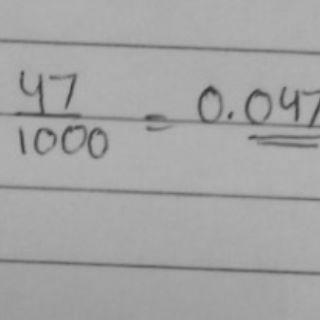 47
1000 = 0.047